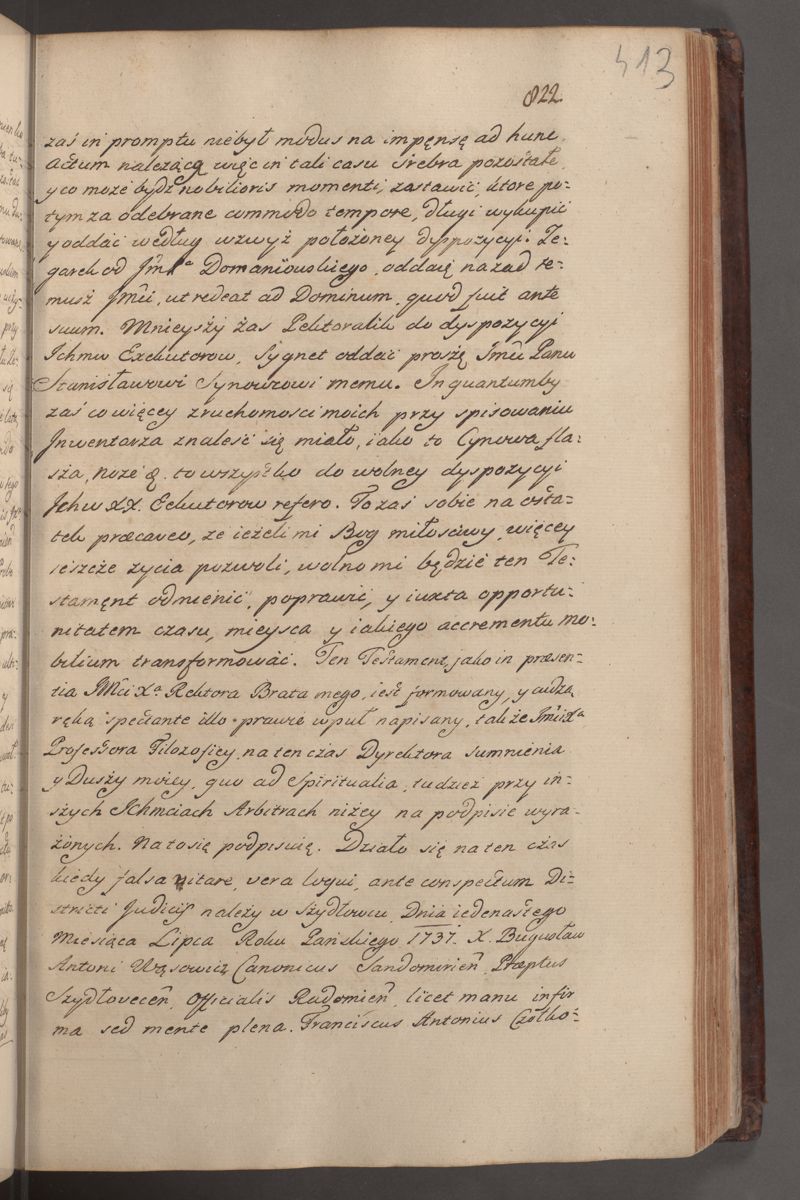 413
822.
zaś in promptu niebył modus na impęnsę ad hunc
actum nalezącą więc in tali casu Srebra pozostałe,
y co może bydź nobilioris momenti, zastawić, ktore po-
tym za odebrane commodo tempore, długi wykupić
y oddać według wzwyż położoney dyspozycyi. Ze-
garek od Domaniowskiego, oddaię nazad re-
musż Jmći, ut redeat ad Dominum, quod fuit ante
suum. Mnieyszy żas Pektoralik do dyspozycyi
Ichmw Exekutorow, Sygnet oddać proszę Jmću Panu
Stanisławowi Synowcowi memu. In quantumby
zaś co więcey z ruchomosci moich przy spisowaniu
Inwentarza znaleść się miało, iako to Cynowa fla-
sza, noże &. to wszystko do wolney dyspozycyi
Ichw XX. Eekutorow refero. To zaś sobie na osta-
tek præcaveo, ze ieżeli mi Bog miłosciwy, więcey
ieszcże życia pozwoli, wolno mi będzie ten Te-
stamęnt odmienić, poprawić, y iuxta opportu-
nitatem czasu, mieysca y iakiego accrementu mo-
bilium transformować. Ten Testament, jako in præsen-
tia JMći Xa Rektora Brata mego, iest formowany, y cudzą
ręką spectante illo prawie wpuł napisany, także Jmći Xa
Professora Filozofiey, na ten czas Dyrektora sumnienia
y Duszy moiey, quo ad Spiritualia, tudzież przy in-
szych Ichmciach Arbitrach niżey na podpisie wyra-
żonych. Na to się podpisuię. Działo się na ten czas
kiedy falsa vitare, vera loqui, ante conspectum Di-
stricti Judicis należy w Szydłowcu, Dnia iedenastego
Miesiąca Lipca Roku Pańskiego 1737. X. Bugusław
Antoni Wąsowicz Canonicus Sandomirień, Præptus
Szydłovecеñ, Officialis Radomień, licet manu infir
ma sed mente plena. Franciscus Antonius Czołko-